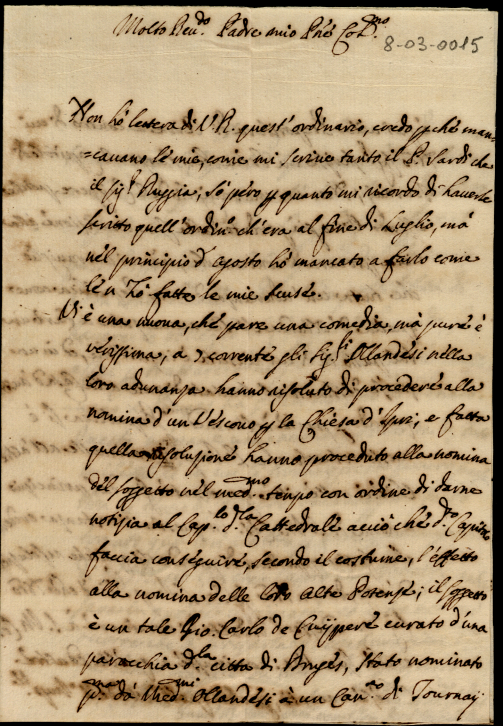 Molto Reu.do Padre mio P̃ne Co.mo
8-03-0015
Non hò lettera di V.R. quest' ordinario, credo ꝑché man=
=cauano le mie, come mi scriue tanto il P. Sardi che
il Sig.r Ruggia, sò però ꝑ quanto mi ricordo di hauerle
scritto quell' ordin.o ch'era al fine di Luglio, mà
nel principio d'Agosto hò mancato a farlo come
le n' hò fatte le mie scuse.
Vi è una nuoua, che pare una comedia, mà pure è
uerissima, a corrente gli Sig.ri Ollandesi nella
loro adunanza hanno risoluto di procedere alla
nomina d'un Vescouo ꝑ la Chiesa d'Ipri, e fatta
quella risolusione hanno proceduto alla nomina
del soggetto nel med.mo tempo con ordine di darne
notizia al Cap.lo d.la Cattedrale acciò che d.to Capitolo
faccia conseguire, secondo il costume, l'effetto
alla nomina delle loro Alte Potenze; il soggetto
è un tale Gio. Carlo de Cuÿpere curato d'una
paracchia d.la città di Bruges, stato nominato
p.ma dà med.mi Ollandesi à un Can.to di Tournay